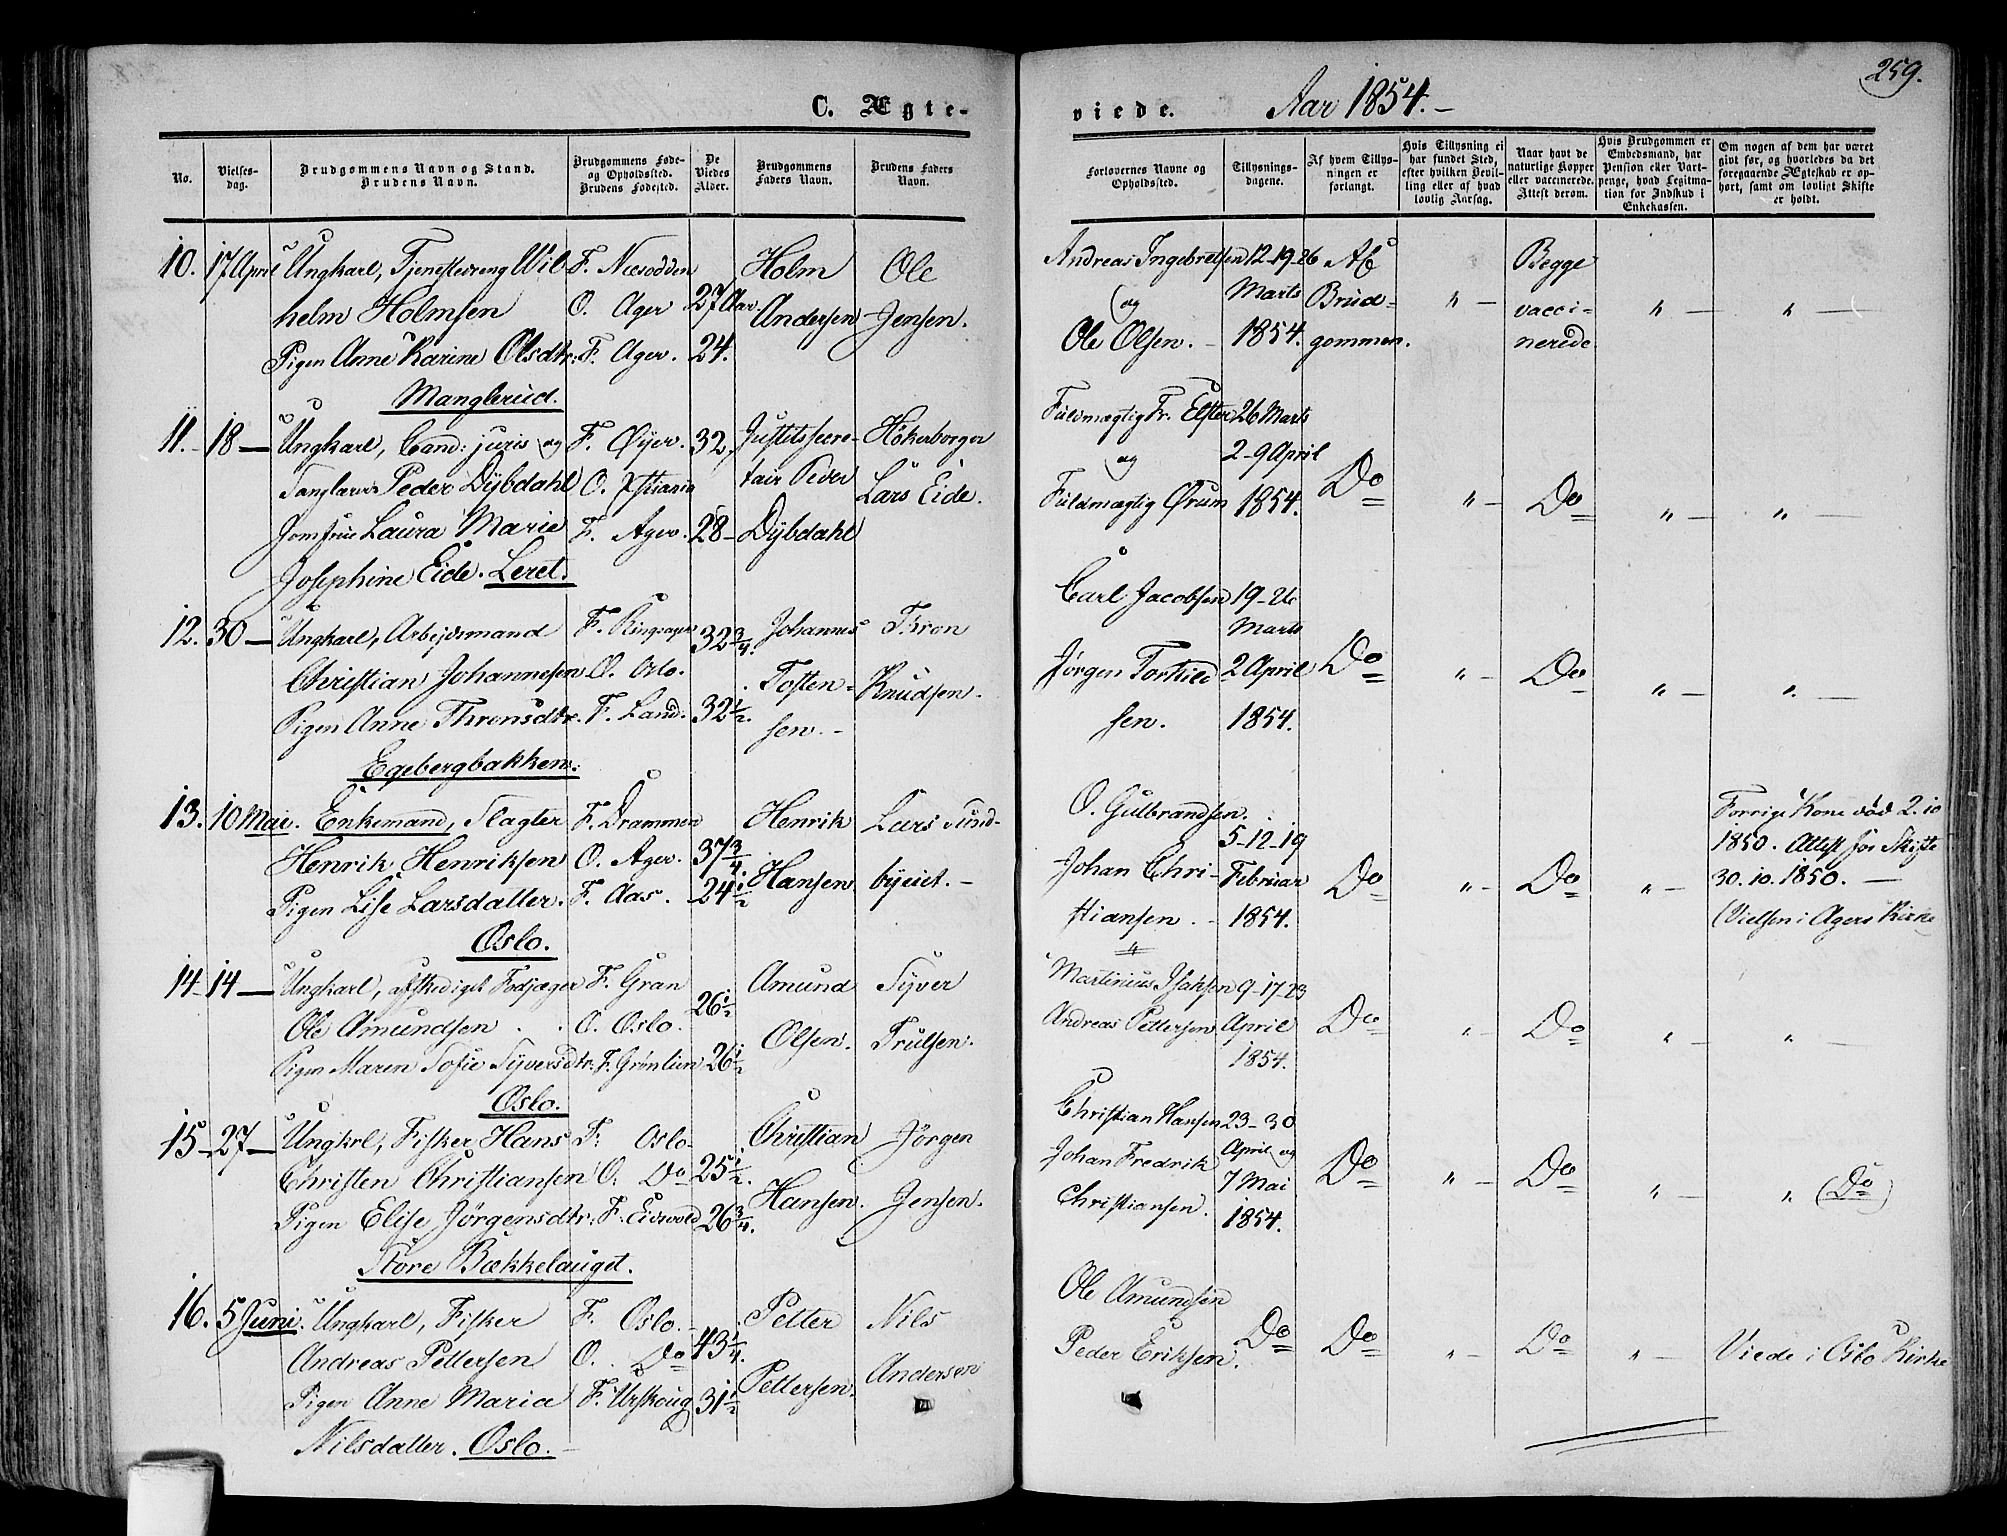 259.
C. Ægte-
viede. Aar 1854.-
No.
Vielses-
dag.
Brudgommens Navn og Stand.
Brudens Navn.
Brudgommens Føde-
og Opholdssted.
Brudens Fødested.
De
Viedes
Alder.
Brudgommens
Faders Navn.
Brudens Faders
Navn.
Forlovernes Navne og
Opholdssted.
Tillysnings-
dagene.
Af hvem Tillys-
ningen er
forlangt.
Hvis Tillysning ei
har fundet Sted,
efter hvilken Bevil-
ling eller af hvad
lovlig Aarsag.
Naar havt de
naturlige Kopper
eller vaccinerede.
Attest derom.
Hvis Brudgommen er
Embedsmand, har
Pension eller Vart-
penge, hvad Legitima-
tion for Indskud i
Enkekassen.
Om nogen af dem har været
givt før, og hvorledes da det
foregaaende Ægteskab er op-
hørt, samt om lovligt Skifte
er holdt.
10. 17 April Ungkarl, Tjenestedreng Wil F. Næsodden Holm Ole
helm Holmsen O. Ager 27 Aar Andersen Jensen.
Pigen Anne Karine Olsdtr: F. Ager. 24.
Manglerud.
Andreas Ingebretsen 12-19-26 Af Begge
og Marts Brud- " - vacci- " - " -
Ole Olsen. - 1854. gommen. nerede
11. 18 - Ungkarl, Cand: juris og F. Øyer. 32, Justitssecre- Høkerborger
Sanglærer Peder Dybdahl O. Xstiania tair Peder Lars Eide.
Jomfrue Laura Marie F. Ager. 28 - Dybdahl
Josephine Eide. Leret.
Fuldmægtig Fr. Elster 26 Marts
og 2-9 April Do " - Do " - " -
Fuldmægtig Ørum 1854.
12. 30 - Ungkarl, Arbejdsmand F. Ringsager 32 3/4. Johannes Thron
Christian Johannesen O. Oslo. Tosten- Knudsen.
Pigen Anne Thronsdtr. F. Land. 32 1/2. sen. -
Egebergbakken.
Carl Jacobsen 19-26
Marts
Jørgen Torkild 2 April Do " - Do " - " -
sen. 1854.
13. 10 Mai. Enkemand, Slagter F. Drammen Henrik Lars Sund-
Henrik Henriksen O. Ager. 37 3/4. Hansen byeiet. -
Pigen Lise Larsdatter. F. Aas. 24 1/2
Oslo.
O. Gulbrandsen. Forrige Kone død 2.10
5-12-19 1850. Attest for Skifte
Johan Chri- Februar Do " - Do " - 30.10.1850. -
stiansen. - 1854. (Vielsen i Agers Kirke
14- 14 - Ungkarl, afskediget Fodjæger F. Gran 26 1/2 Amund Syver
Ole Amundsen O. Oslo. Olsen. Trulsen.
Pigen Maren Sofie Syversdtr. F. Grønlien 26 1/2
Oslo.
"
Martinius Isaksen 9-17-23
Andreas Pettersen April Do " - Do " - " -
1854.
15- 27 - Ungkrl, Fisker Hans F. Oslo. Christian Jørgen
Christen Christiansen O. Do 25 1/2. Hansen. Jensen.
Pigen Elise Jørgensdtr. F. Eidsvold 26 3/4.
Store Bækkelauget.
Christian Hansen 23-30
Johan Fredrik April og Do " - Do " - " (Do)
Christiansen. 7 Mai
1854.
16. 5 Juni. Ungkarl, Fisker F. Oslo. - Petter Nils
Andreas Pettersen O. Do 43 1/4. Pettersen. Andersen
Pigen Anne Maria F. Urskoug 31 1/2
Nilsdatter. Oslo. -
Ole Amundsen
Peder Eriksen. Do Do " - Do " - Viede i Oslo Kirke